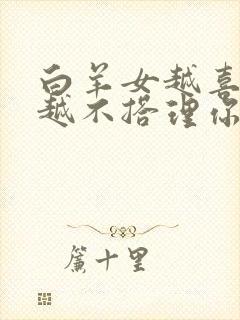 白羊女越喜
越不搭理你
簾十里